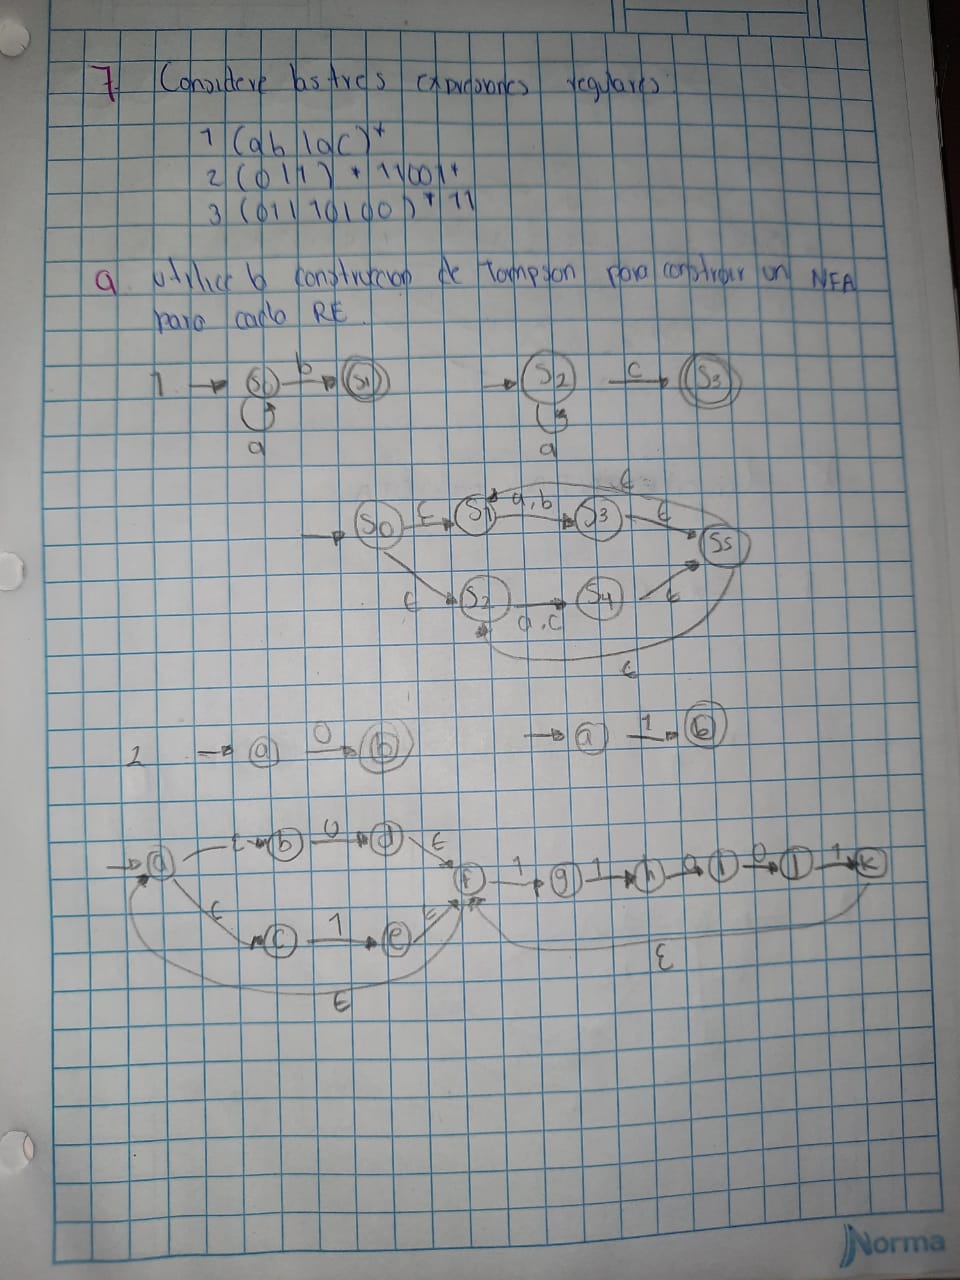 7 Considere las tres expresiones regulares
1 (ab|ac)*
2 (0|1)*11001*
3 (01|10|00)*11
a Utilice la construccion de Tompson para construir un NFA
para cada RE.
1 S0 b S1 S2 c S3
a a
ε
S0 ε S1 a,b S3 ε S5
ε S2 a,c S4 ε
ε
2 a 0 b a 1 b
a ε b 0 d ε f 1 g 1 h 0 i 0 j 1 k
ε c 1 e ε
ε
ε
Norma